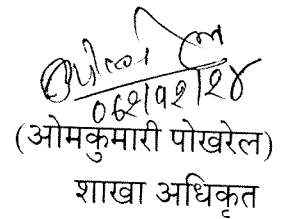 ०६२।१२।२४
(ओमकुमारी पोखरेल)
शाखा अधिकृत